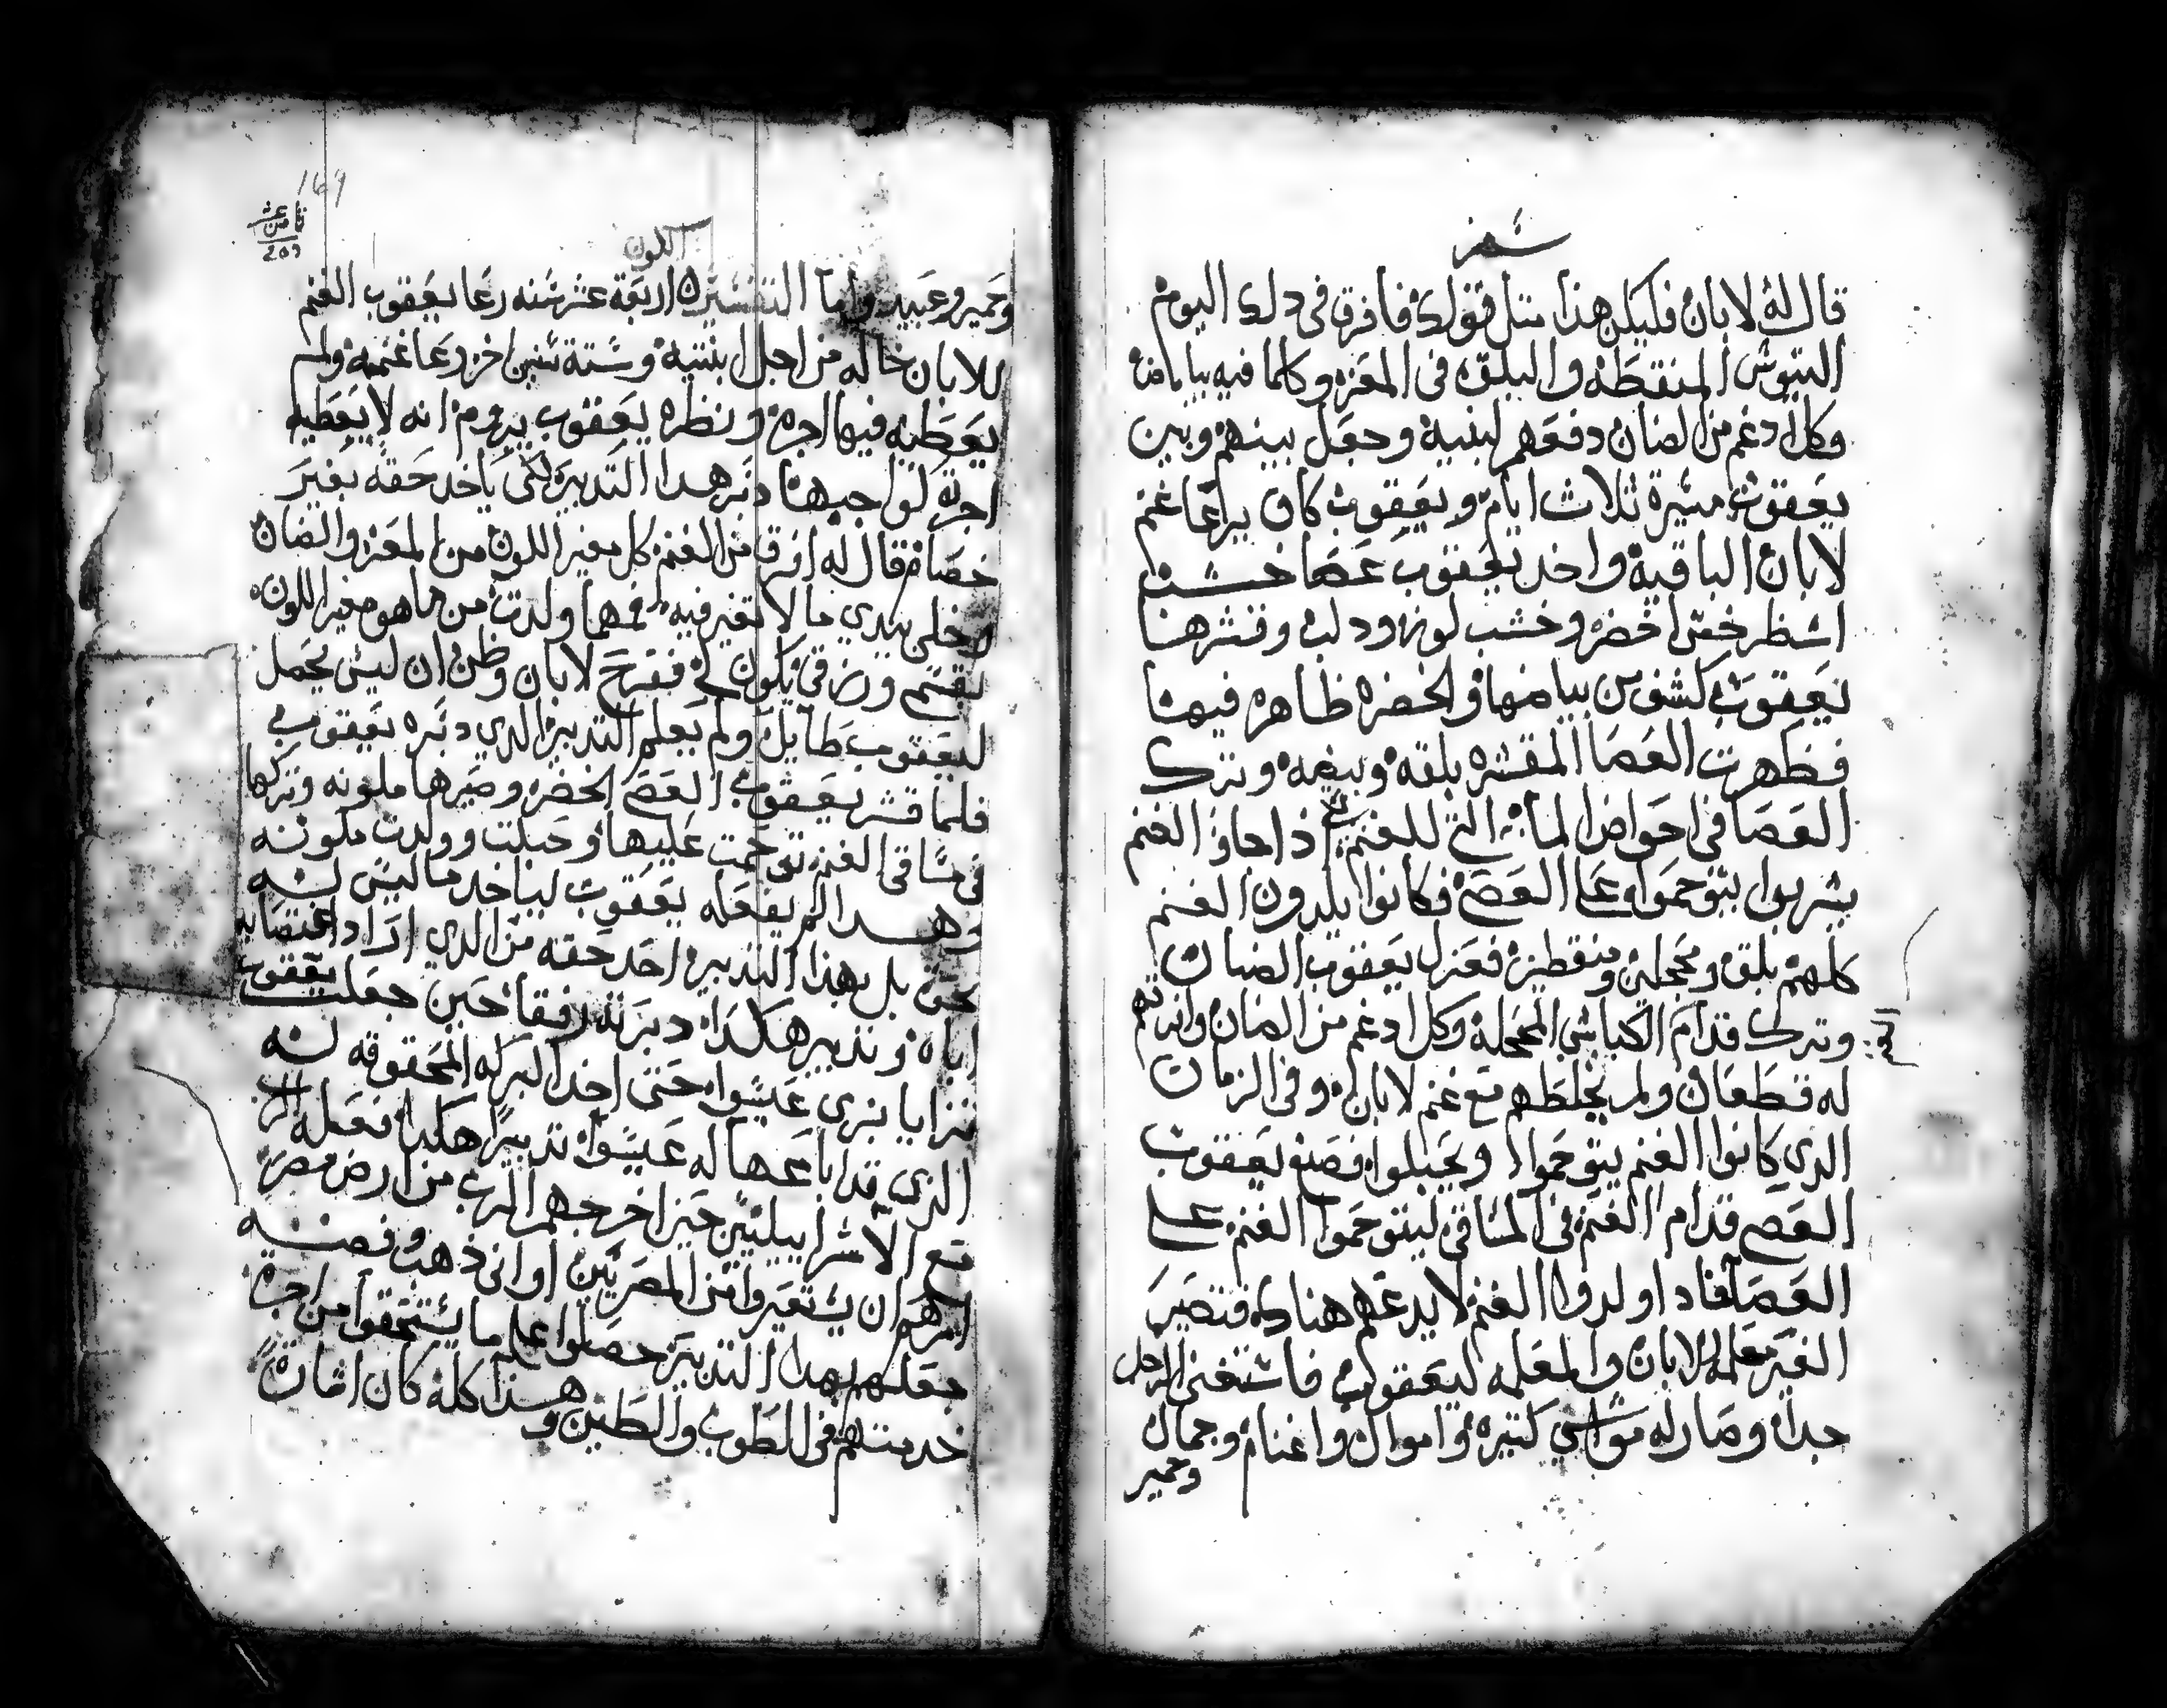 قال له لابان فليكن هذا متل قولك فافرق فى دلك اليوم
التيوس المنقطه والبلق فى المعزه وكلما فيه بياض
وكل ادغم من الضان دفعهم لبنيه وجعل بينهم وبين
يعقوب مسيرة تلات ايام ويعقوب كان يراعا غنم
لابان الباقيه واخد يعقوب عصا خشب
اخضر وخشب لوز ودلب وقشرها
يعقوب كشف من بياضها والخضره ظاهره فيها
فظهرت العصا المقشره بلقه وبيضه وترك
العصا فى احواض الماء التى للغنم اذا جاوا الغنم
يشربوا يتوحموا على العصى فكانوا يلدون الغنم
كلهم بلق ومحجلين ومنقطين فعزل يعقوب الضان
وترك قدام الكباش المحجله وكل ادغم من الضان
له قطعان ولم يخلطهم مع غنم لابان وفى الزمان
الدى كانوا الغنم يتوحموا ويحبلوا فصنع يعقوب
العصى قدام الغنم فى المساقى ليتوحموا الغنم على
العصا فاد اولدوا الغنم لا يدعهم هناك فتصير
الغير معلمه للابان والمعلمه ليعقوب فاستغنى الرجل
جدا وصار له مواشى كتيره واموال واغنام وجمال
وحمير
169
ثامن عشر
اللون
وحمير وعبيد واما التفسير اربعة عشر سنه رعا يعقوب الغنم
للابان خاله من اجل ابنتيه وستة سنين اخر رعا غنمه ولم
يعطيه فيها اجره ونظره يعقوب يروم انه لا يعطيه
اجرة لواجبها دبر هدا التدبير لكى ياخد حقه بغير
خصام فقال له افرق من الغنم كل مغير اللون من المعز والضان
وخلى بيدى ما لا تغير فيه فمهما ولدت من ما هو مغير اللون
يكون لى ففرح لابان وظن ان ليس يحمل
ليعقوب طايل ولم يعلم التدبير الدي دبره يعقوب
فلما قشر يعقوب العصى الخضره وصيرها ملونه وتركها
فى مساقى الغنم توحمت عليها وحبلت وولدت ملونه
وهدا لم يفعله يعقوب لياخد ما ليس له
بحق بل بهدا التدبير اخد حقه من الدي اراد اغتصابه
اياه وتدبير هكدا دبرته رفقا حين جعلت يعقوب
يتزايا بزى عيسوا حتى اخد البركه المحقوقه له
الذي قد باعها له عيسوا تدبيرا هكدا فعله الرب
مع الاسراييليين حين اخرجهم الرب من ارض مصر
امرهم ان يستعيروا من المصريين اوانى ذهب وفضه
جعلهم بهدا التدبير حصلوا على ما يستحقوا من اجرة
خدمتهم فى الطوب والطين وهذا كله كان